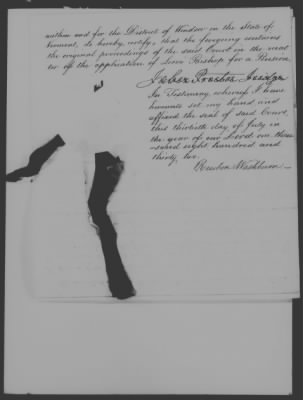 within and for the District of Windsor in the State of
Vermont, do hereby, certify, that the foregoing contains
the original proceedings of the said Court in the mat
ter of the application of for a Pension.
Jabez Proctor Judge
In Testimony, whereof I have
hereunto set my hand and
affixed the seal of said Court,
this thirtieth day of July in
the year of our Lord one thou
-sand eight hundred and
thirty two.
Reuben Washburn